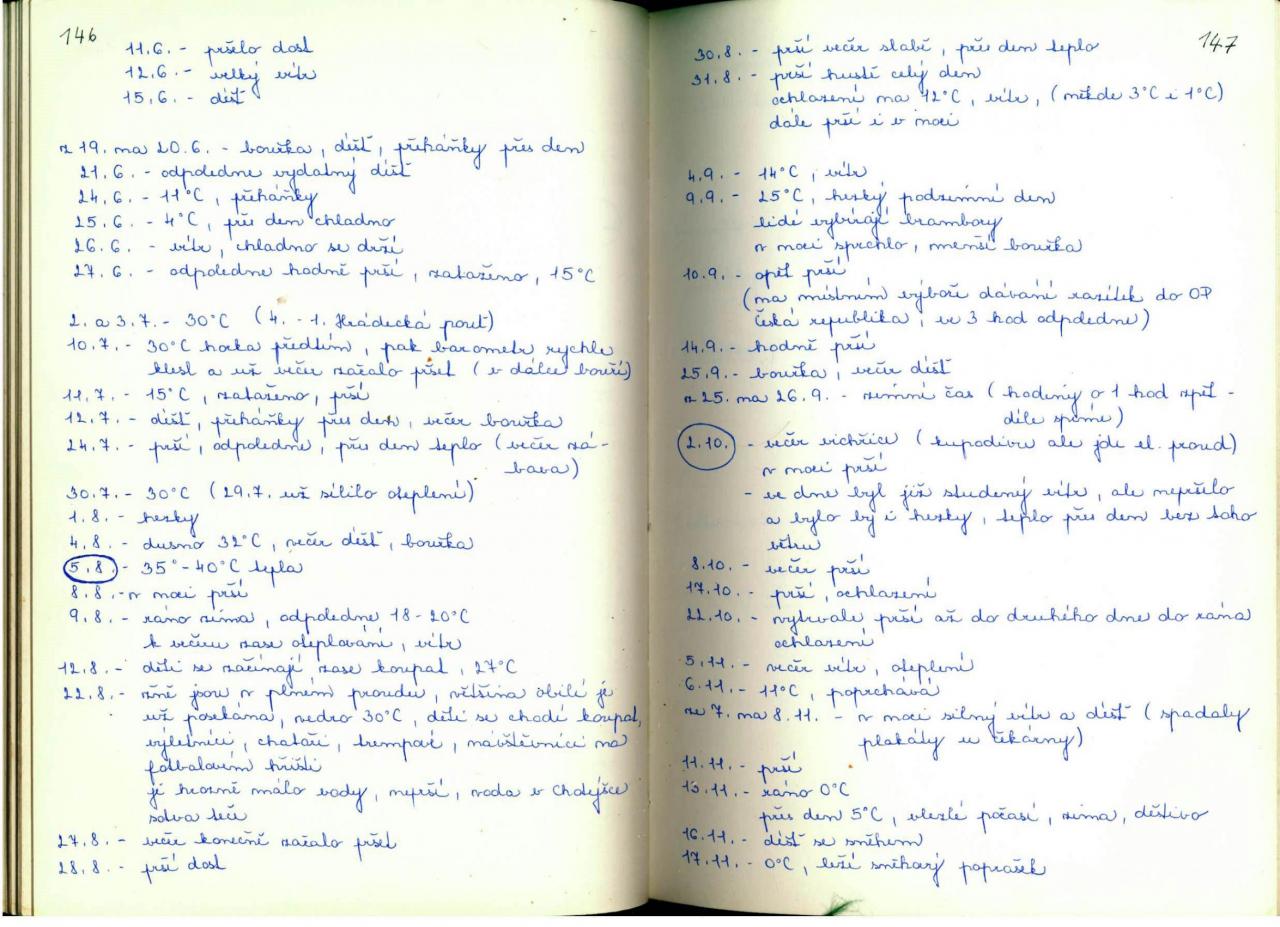 146
11.6. - pršelo dost
12.6. - velký vítr
15.6. - déšť
z 19. na 20.6. - bouřka, déšť, přeháňky přes den
21.6. - odpoledne vydatný déšť
24.6. - 11°C, přeháňky
25.6. - 4°C, přes den chladno
26.6. - vítr, chladno se drží
27.6. - odpoledne hodně prší, zataženo, 15°C
2. a 3.7. - 30°C (4. - 1. Hrádecká pouť)
10.7. - 30°C horka předtím, pak barometr rychle
klesl a už večer začalo pršet (v dálce bouří)
11.7. - 15°C, zataženo, prší
12.7. - déšť, přeháňky přes den, večer bouřka
24.7. - prší, odpoledne, přes den teplo (večer zá-
bava)
30.7. - 30°C (29.7. už sílilo oteplení)
1.8. - hezky
4.8. - dusno 32°C, večer déšť, bouřka
5.8. - 35° - 40°C tepla
8.8. - v noci prší
9.8. - ráno zima, odpoledne 18 - 20°C
k večeru zase oteplování, vítr
12.8. - děti se začínají zase koupat, 27°C
22.8. - žně jsou v plném proudu, většina obilí je
už posekána, vedro 30°C, děti se chodí koupat,
výletníci, chataři, trempové, návštěvníci na
fotbalovém hřišti
je hrozně málo vody, neprší, voda v Chotýšce
sotva teče
27.8. - večer konečně začalo pršet
28.8. - prší dost
147
30.8. - prší večer slabě, přes den teplo
31.8. - prší hustě celý den
ochlazení na 12°C, vítr, (někde 3°C i 1°C)
dále prší i v noci
4.9. - 14°C, vítr
9.9. - 25°C, hezký podzimní den
lidé vybírají brambory
v noci sprchlo, menší bouřka
10.9. - opět prší
(na místním výboře dávání razítek do OP
Česká republika, ve 3 hod odpoledne)
14.9. - hodně prší
25.9. - bouřka, večer déšť
z 25. na 26.9. - zimní čas (hodiny o 1 hod zpět -
déle spíme)
2.10. - večer vichřice (kupodivu ale jde el. proud)
v noci prší
- ve dne byl již studený vítr, ale nepršelo
a bylo by i hezky, teplo přes den bez toho
větru
8.10. - večer prší
17.10. - prší, ochlazení
22.10. - vytrvale prší až do druhého dne do rána
ochlazení
5.11. - večer vítr, oteplení
6.11. - 11°C, poprchává
ze 7. na 8.11. - v noci silný vítr a déšť (spadaly
plakáty u čekárny)
11.11. - prší
13.11. - ráno 0°C
přes den 5°C, vlezlé počasí, zima, deštivo
16.11. - déšť se sněhem
17.11. - 0°C, leží sněhový poprašek